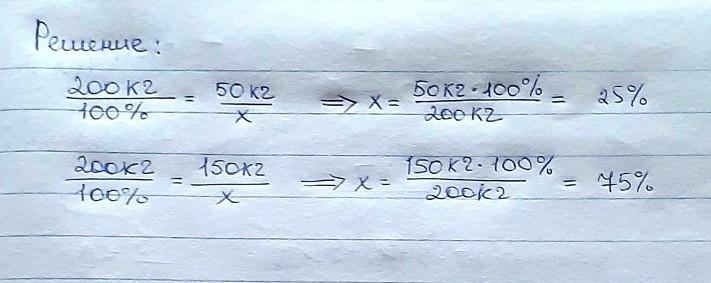 Решение:
200кг/100% = 50кг/x => x = 50кг·100%/200кг = 25%
200кг/100% = 150кг/x => x = 150кг·100%/200кг = 75%